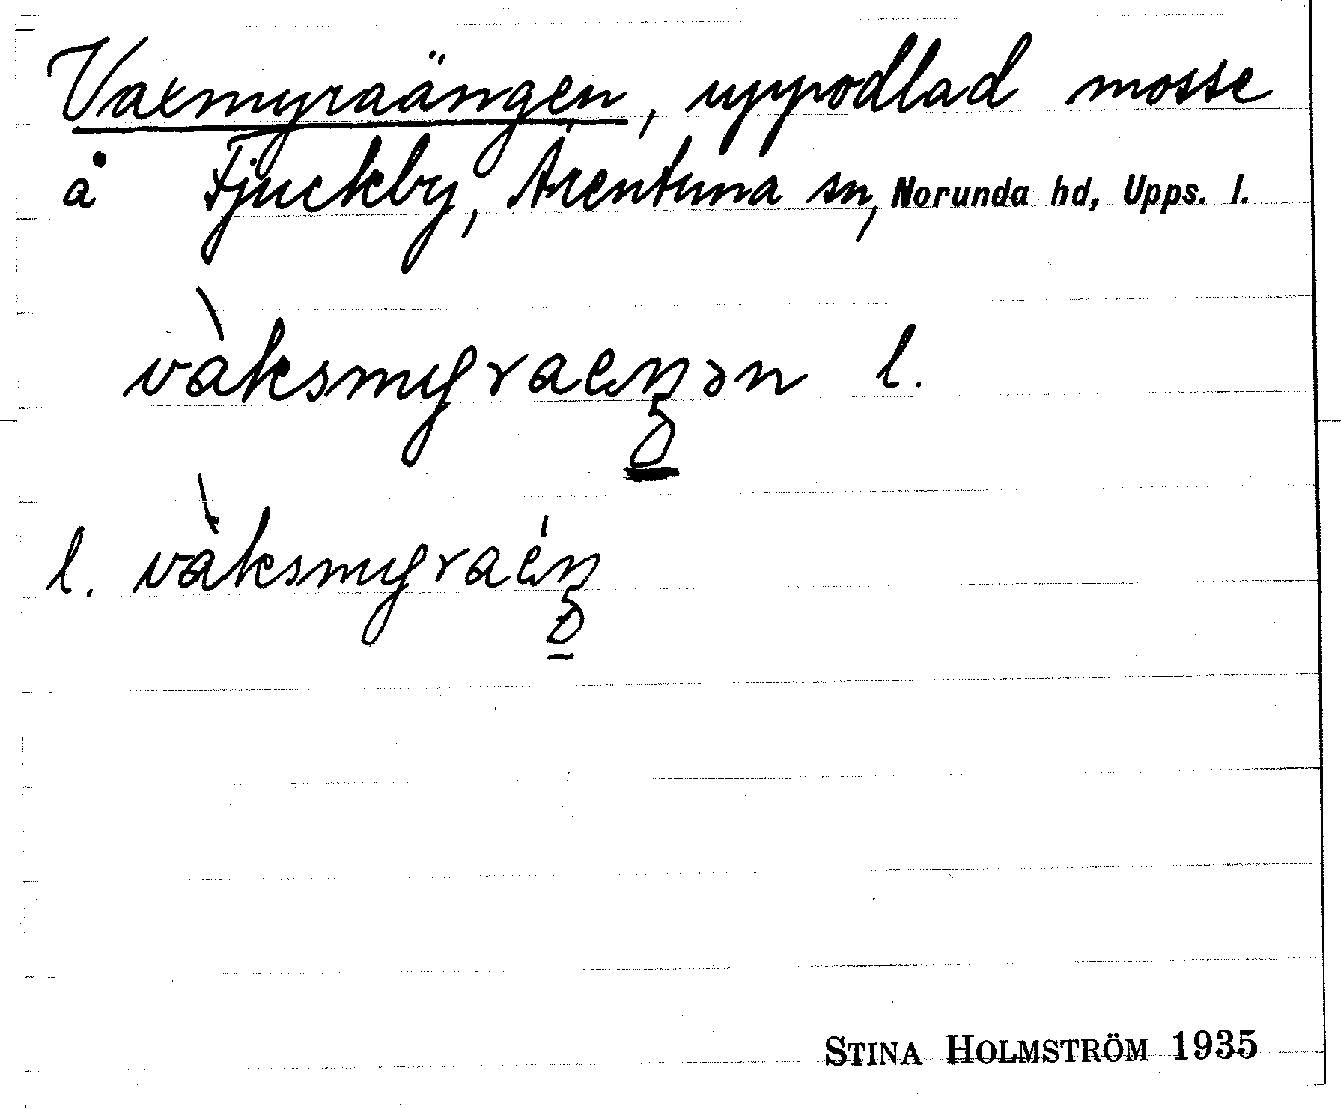 Vaxmyraängen, uppodlad mosse
å Fjuckby, Ärentuna sn, Norunda hd, Upps. l.
vàksmyraeŋən l.
l. vàksmyraéŋ
STINA HOLMSTRÖM 1935